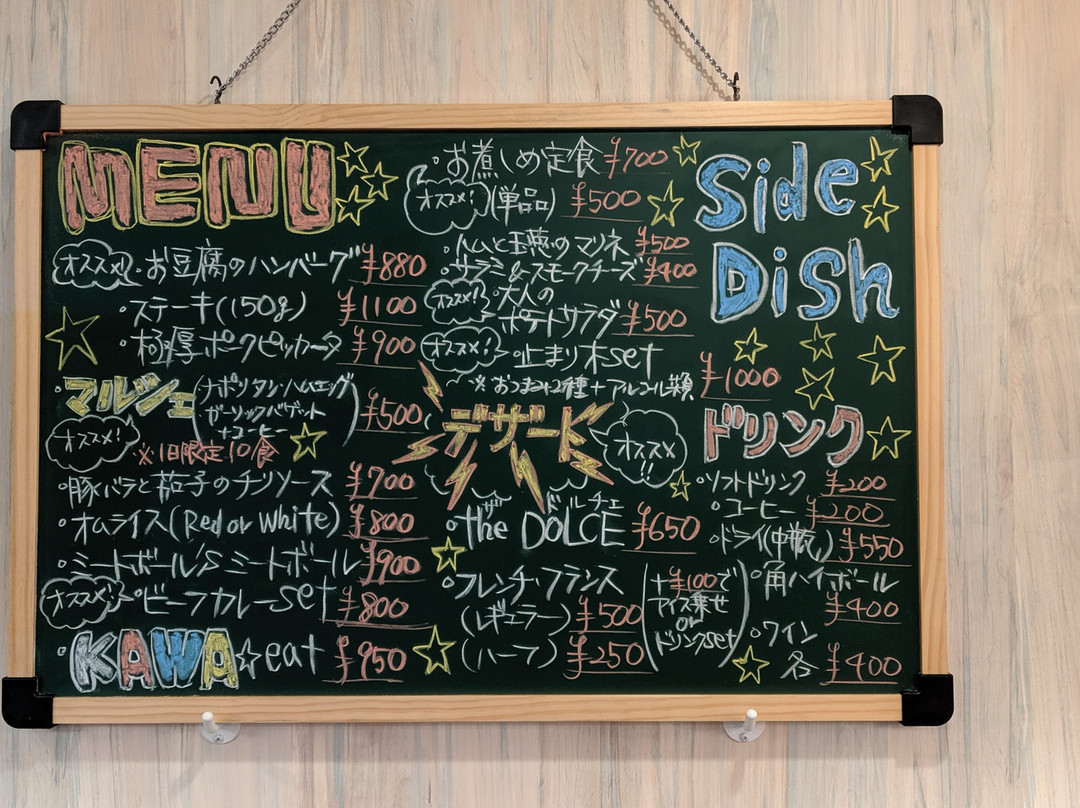 MENU
オススメ!
・お豆腐のハンバーグ ¥880
・ステーキ(150g) ¥1100
・極厚ポークピッカータ ¥900
・マルシェ
(ナポリタン・ハムエッグ
ガーリックバゲット
+コーヒー) ¥500
オススメ!
※1日限定10食
・豚バラと茄子のチリソース ¥700
・オムライス(Red or White) ¥800
・ミートボール'Sミートボール ¥900
オススメ!
・ビーフカレーset ¥800
・KAWA☆eat ¥950
・お煮しめ定食 ¥700
オススメ!
(単品) ¥500
Side
Dish
・トムと玉葱のマリネ ¥500
・サラミ&スモークチーズ ¥400
オススメ!
・大人の
ポテトサラダ ¥500
オススメ!
・止まり木set
※おつまみ2種+アルコール類 ¥1000
デザート
オススメ!!
ザ ドルチェ
・the DOLCE ¥650
・フレンチ・フランス
(レギュラー) ¥500
(ハーフ) ¥250
(+¥100で
アイス乗せ
or
ドリンクset)
ドリンク
・ソフトドリンク ¥200
・コーヒー ¥200
・ドライ(中瓶) ¥550
・角ハイボール
¥400
・ワイン
各 ¥400